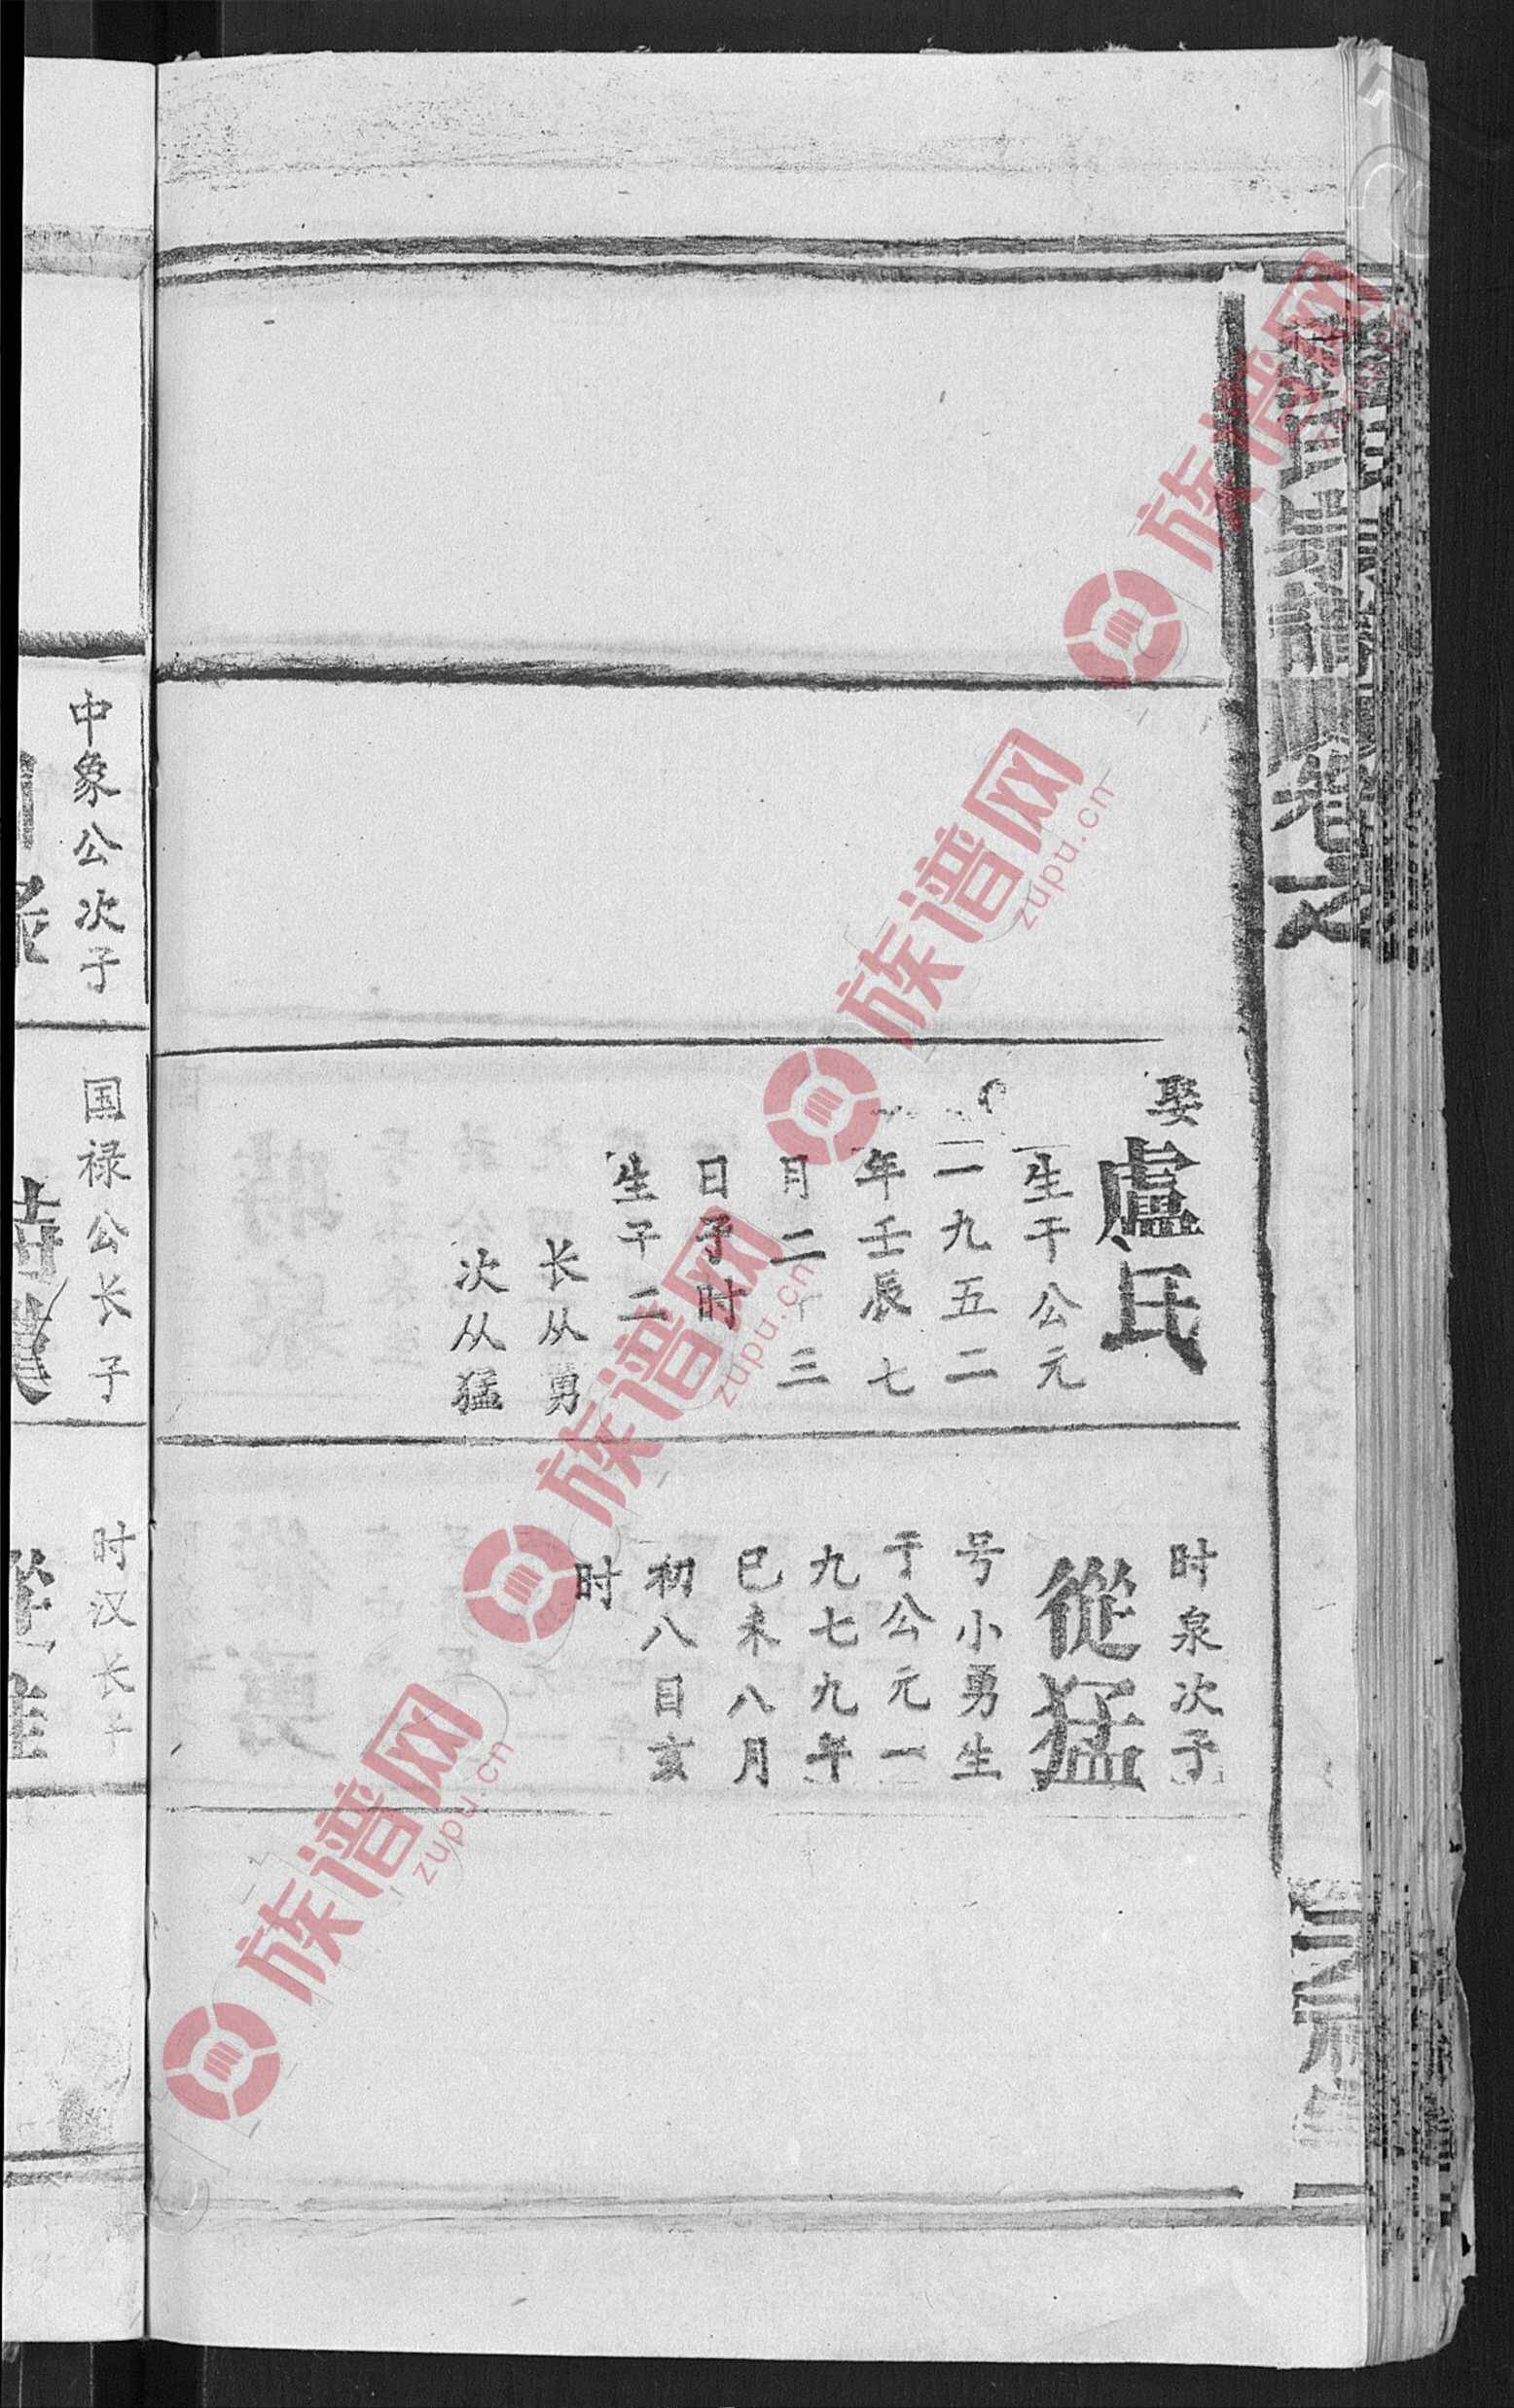 娶
盧氏
生于公元
一九五二
年壬辰七
月二十三
日子时
生子二
长从勇
次从猛
时泉次子
從猛
号小勇生
于公元一
九七九年
巳未八月
初八日亥
时
中象公次子
国禄公长子
时汉长子
族谱网
zupu.cn
族谱网
zupu.cn
族谱网
zupu.cn
族谱网